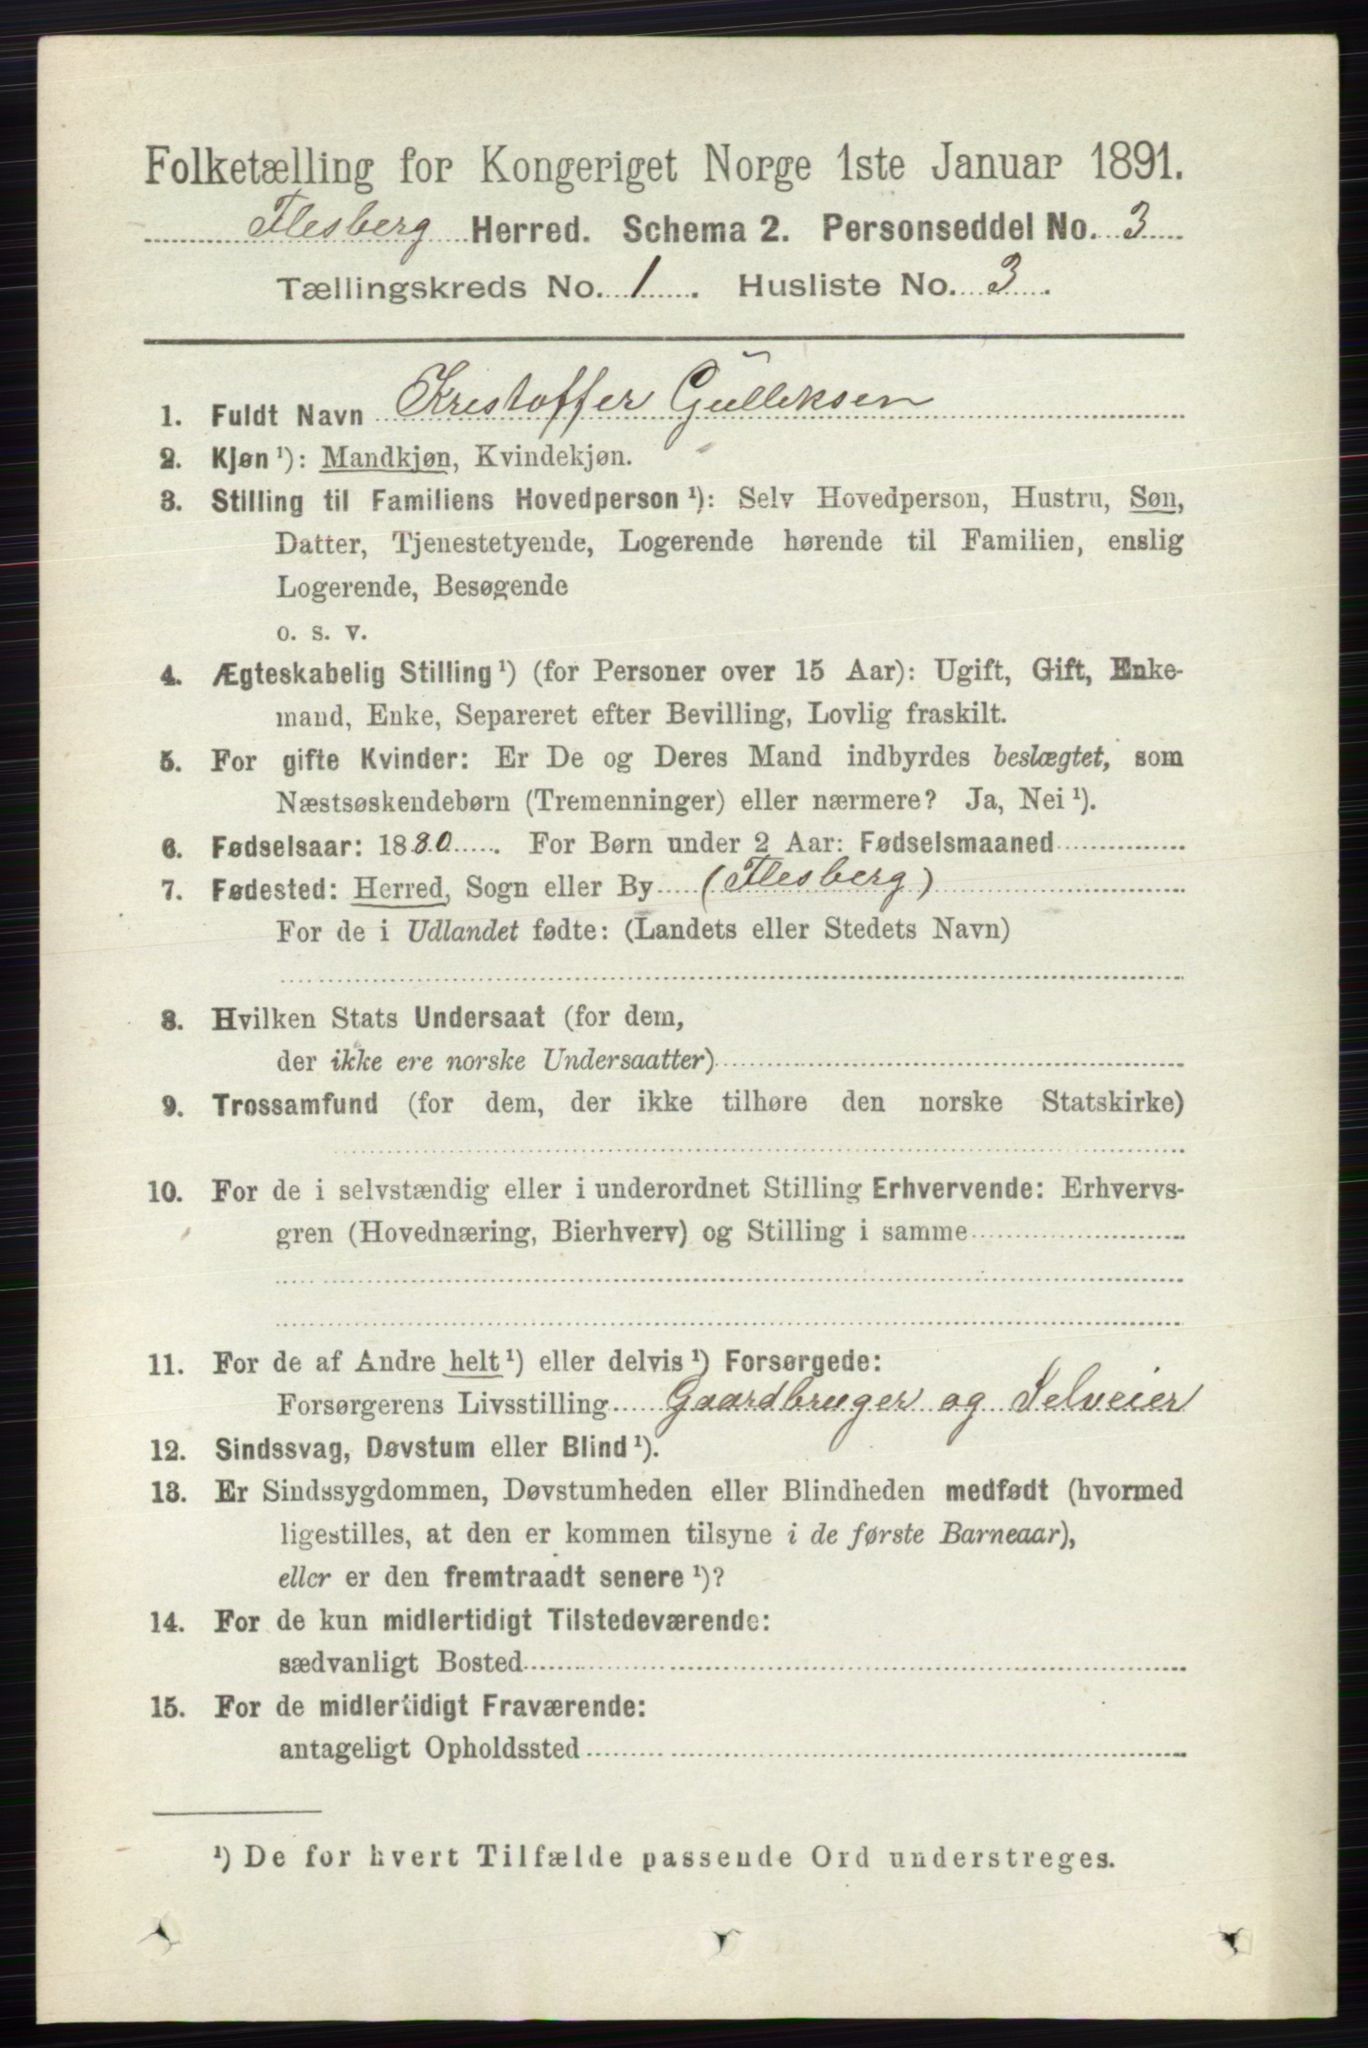 Folketælling for Kongeriget Norge 1ste Januar 1891.
Flesberg Herred. Schema 2. Personseddel No. 3
Tællingskreds No. 1. Husliste No. 3.
1. Fuldt Navn Kristoffer Gulleksen
2. Kjøn ¹): Mandkjøn, Kvindekjøn.
3. Stilling til Familiens Hovedperson ¹): Selv Hovedperson, Hustru, Søn,
Datter, Tjenestetyende, Logerende hørende til Familien, enslig
Logerende, Besøgende
o. s. v.
4. Ægteskabelig Stilling ¹) (for Personer over 15 Aar): Ugift, Gift, Enke-
mand, Enke, Separeret efter Bevilling, Lovlig fraskilt.
5. For gifte Kvinder: Er De og Deres Mand indbyrdes beslægtet, som
Næstsøskendebørn (Tremenninger) eller nærmere? Ja, Nei ¹).
6. Fødselsaar: 1880. For Børn under 2 Aar: Fødselsmaaned
7. Fødested: Herred, Sogn eller By (Flesberg)
For de i Udlandet fødte: (Landets eller Stedets Navn)
8. Hvilken Stats Undersaat (for dem,
der ikke ere norske Undersaatter)
9. Trossamfund (for dem, der ikke tilhøre den norske Statskirke)
10. For de i selvstændig eller i underordnet Stilling Erhvervende: Erhvervs-
gren (Hovednæring, Bierhverv) og Stilling i samme
11. For de af Andre helt ¹) eller delvis ¹) Forsørgede:
Forsørgerens Livsstilling Gaardbruger og Selveier
12. Sindssvag, Døvstum eller Blind ¹).
13. Er Sindssygdommen, Døvstumheden eller Blindheden medfødt (hvormed
ligestilles, at den er kommen tilsyne i de første Barneaar),
eller er den fremtraadt senere ¹)?
14. For de kun midlertidigt Tilstedeværende:
sædvanligt Bosted
15. For de midlertidigt Fraværende:
antageligt Opholdssted
¹) De for hvert Tilfælde passende Ord understreges.